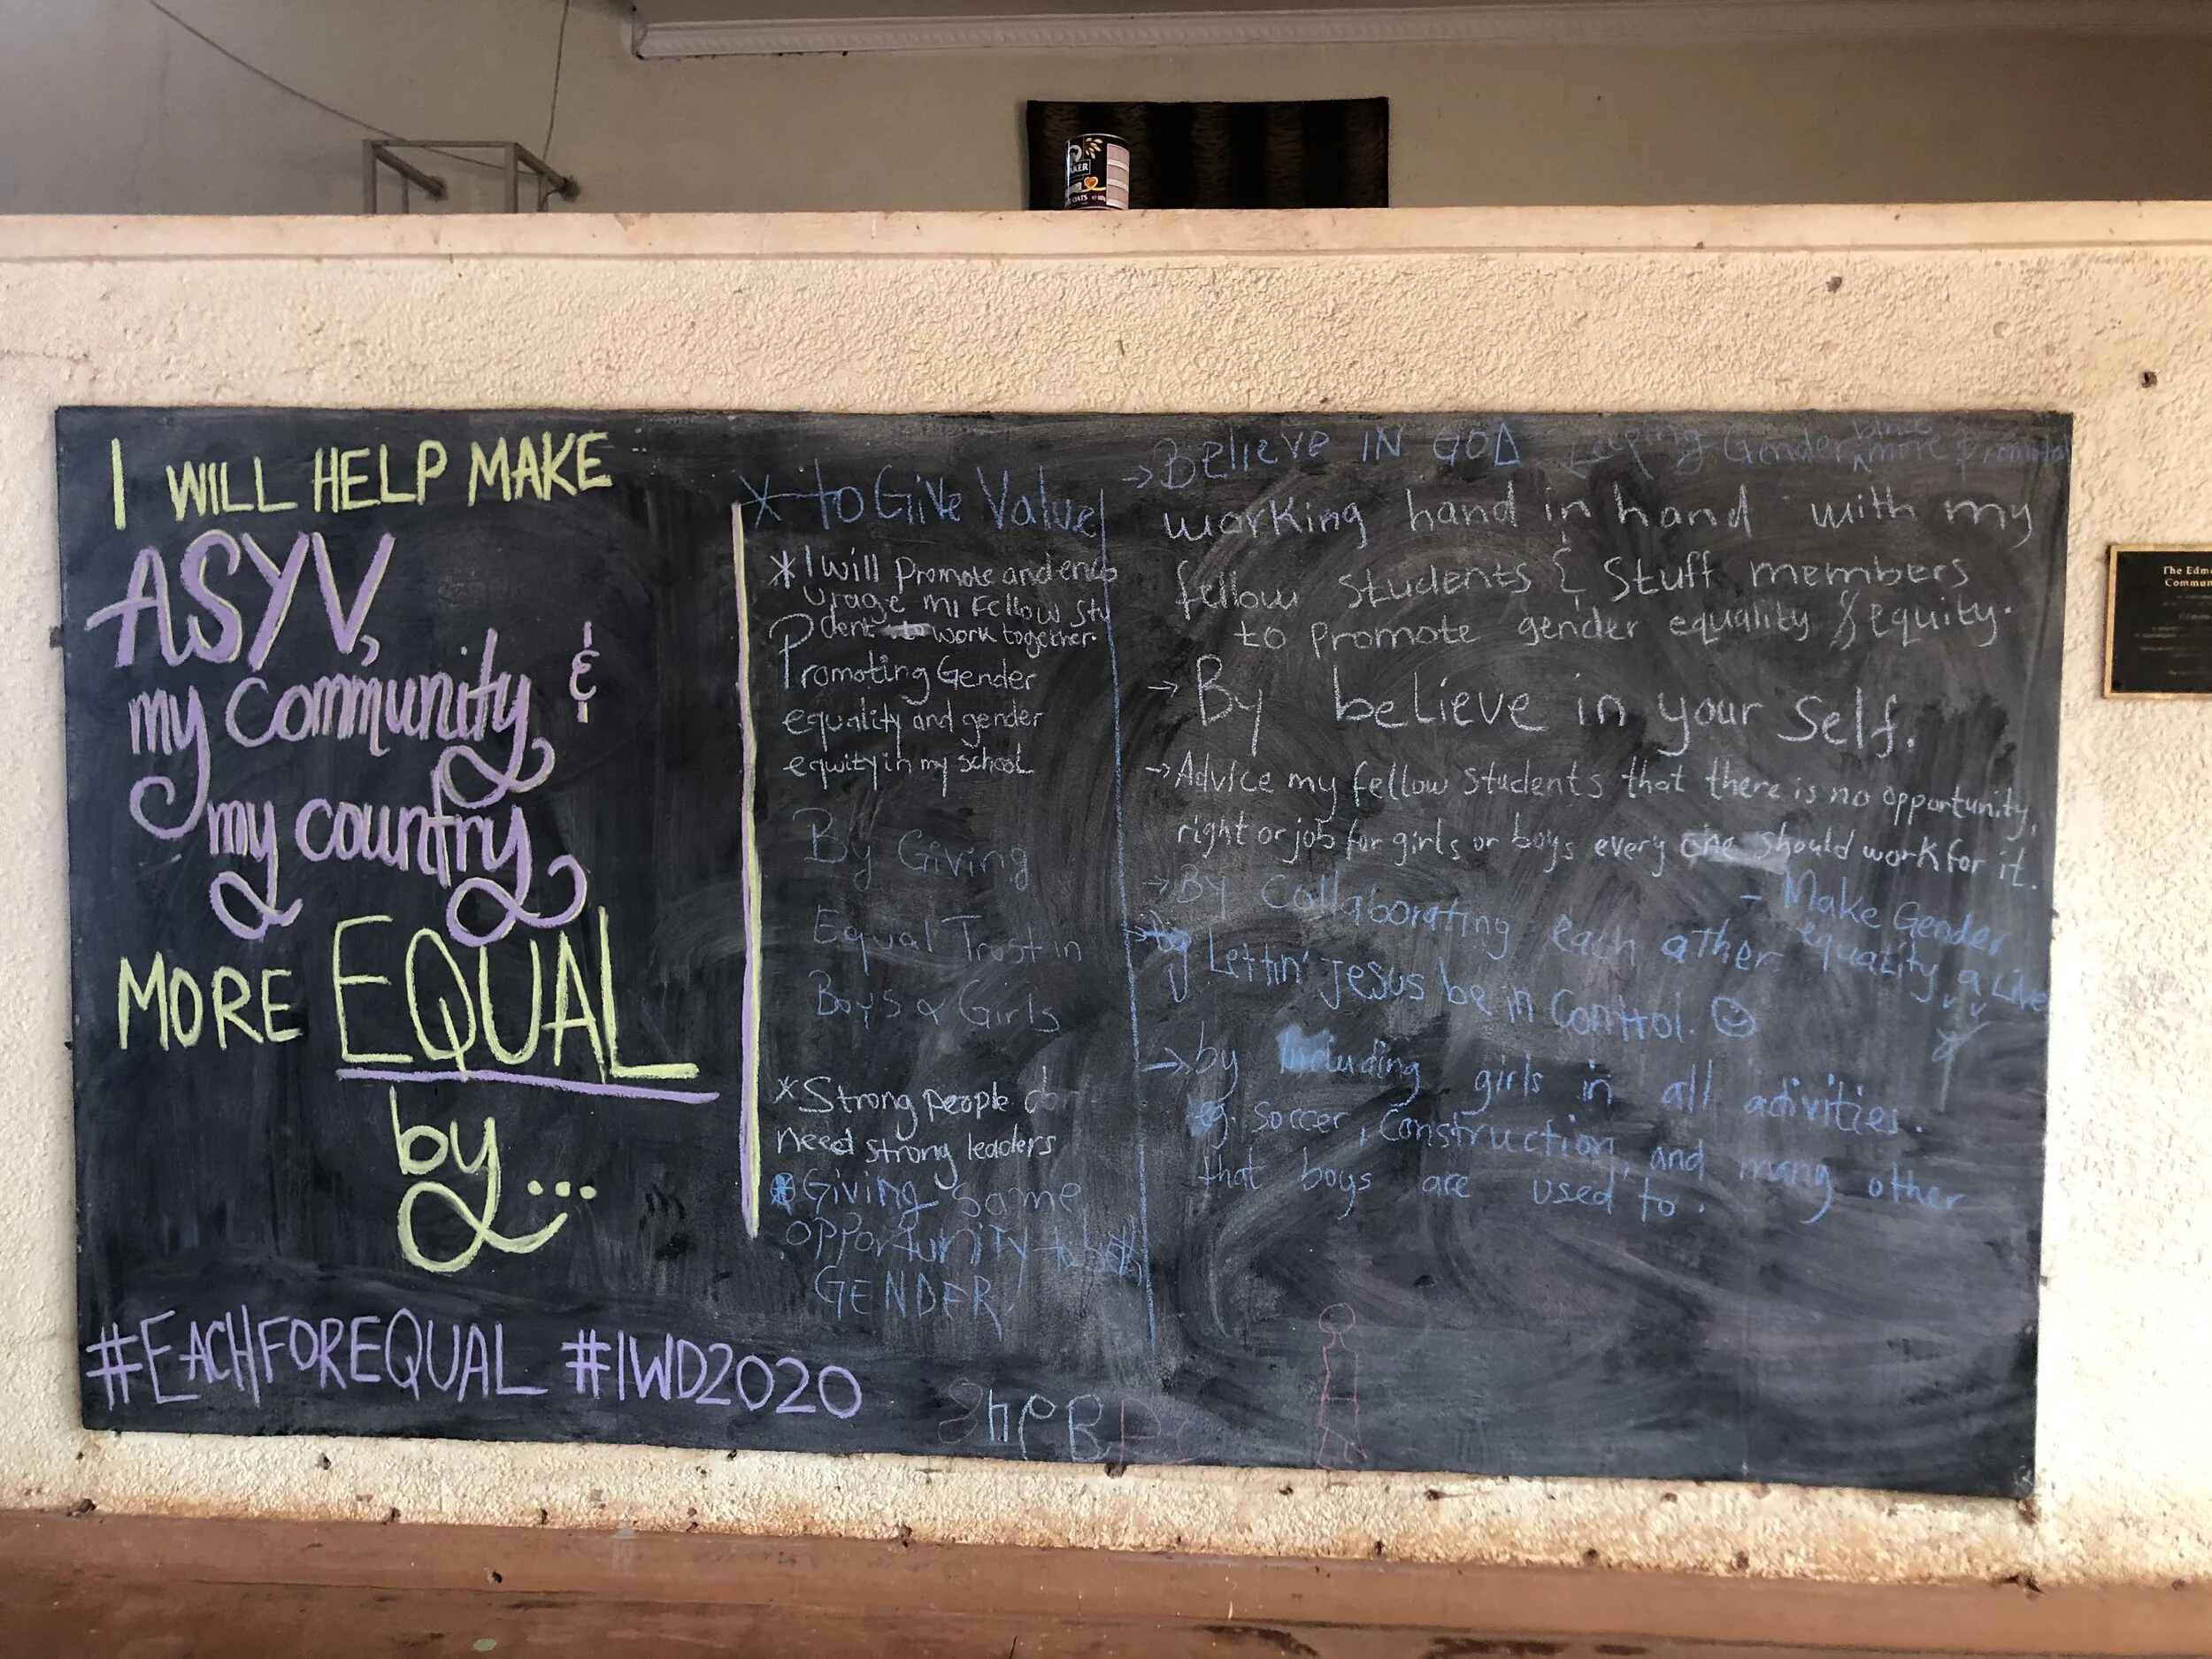 AKER
OATS
I WILL HELP MAKE
ASYV,
my community &
my country
MORE EQUAL
by...
#EACHFOREQUAL #IWD2020
* to Give Value
* I will promote and enco
urage mi fellow stu
dent to work together.
Promoting Gender
equality and gender
equity in my school
By Giving
Equal Trust in
Boys & Girls
* Strong people do
need strong leaders
* Giving same
opportunity to both
GENDER
→ Believe IN GOD
Gender more
working hand in hand with my
fellow students & stuff members
to promote gender equality & equity.
→ By believe in your self.
→ Advice my fellow students that there is no opportunity,
right or job for girls or boys every one should work for it.
→ By Collaborating each ather
- Make Gender
equality a Live
→ by Lettin' Jesus be in Control. ☺
→ by including girls in all activities.
eg. soccer, construction, and many other
that boys are used to.
The Edm
Commun